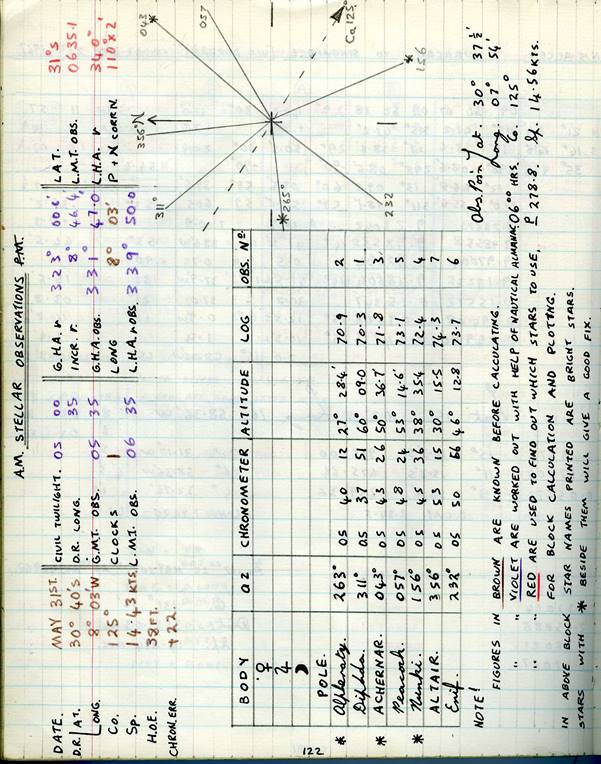 A.M. STELLAR OBSERVATIONS P.M.
DATE. MAY 31ST. CIVIL TWILIGHT. 05 00 G.H.A. ♈ 323° 00.6' LAT. 31°S
D.R. LAT. 30° 40'S D.R. LONG. 35 INCR. ♈. 8° 46.4' L.M.T. OBS. 0635.1
LONG. 8° 03'W G.M.T. OBS. 05 35 G.H.A. OBS. 331° 47.0 L.H.A. ♈ 340°
Co. 125° CLOCKS 1 LONG 8° 03' P + N CORRN. 110° x 2'
Sp. 14.43 KTS. L.M.T. OBS. 06 35 L.H.A. ♈ OBS. 339° 50.0
H.O.E. 38 FT.
CHRON. ERR. +22.
BODY AZ CHRONOMETER ALTITUDE LOG OBS. No.
♀
♃
☽
POLE.
* Alpheratz. 263° 05 40 12 27° 28.4' 70.9 2
Diphda. 311° 05 37 51 60° 09.0 70.3 1
* ACHERNAR. 043° 05 43 26 50° 36.7' 71.8 3
Peacock. 057° 05 48 24 53° 14.6' 73.1 5
* Nunki. 156° 05 45 36 38° 35.4 72.4 4
ALTAIR. 356° 05 53 15 30° 15.5 74.3 7
Enif. 232° 05 50 56 46° 12.8 73.7 6
311°
356°
N
043°
*
057
Ca 125°
* 156
* 265°
232
Obs. Posn. Lat. 30° 37½'
Long. 07° 54'
06°° HRS. Co. 125°
P 278.8. Sp. 14.56 KTS.
NOTE! FIGURES IN BROWN ARE KNOWN BEFORE CALCULATING.
" " VIOLET ARE WORKED OUT WITH HELP OF NAUTICAL ALMANAC
" " RED ARE USED TO FIND OUT WHICH STARS TO USE,
FOR BLOCK CALCULATION AND PLOTTING.
IN ABOVE BLOCK STAR NAMES PRINTED ARE BRIGHT STARS.
STARS WITH * BESIDE THEM WILL GIVE A GOOD FIX.
122